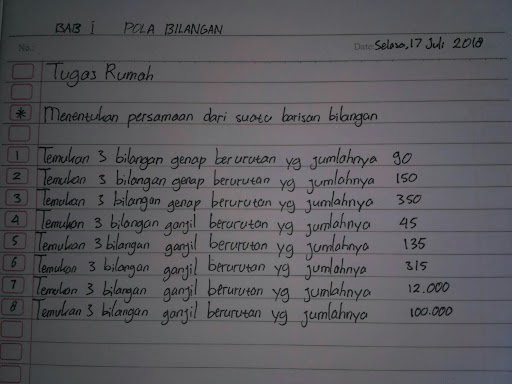 BAB I POLA BILANGAN
No.: Date: Selasa, 17 Juli 2018
Tugas Rumah
* Menentukan persamaan dari suatu barisan bilangan
1 Temukan 3 bilangan genap berurutan yg jumlahnya 90
2 Temukan 3 bilangan genap berurutan yg jumlahnya 150
3 Temukan 3 bilangan genap berurutan yg jumlahnya 350
4 Temukan 3 bilangan ganjil berurutan yg jumlahnya 45
5 Temukan 3 bilangan ganjil berurutan yg jumlahnya 135
6 Temukan 3 bilangan ganjil berurutan yg jumlahnya 315
7 Temukan 3 bilangan ganjil berurutan yg jumlahnya 12.000
8 Temukan 3 bilangan ganjil berurutan yg jumlahnya 100.000